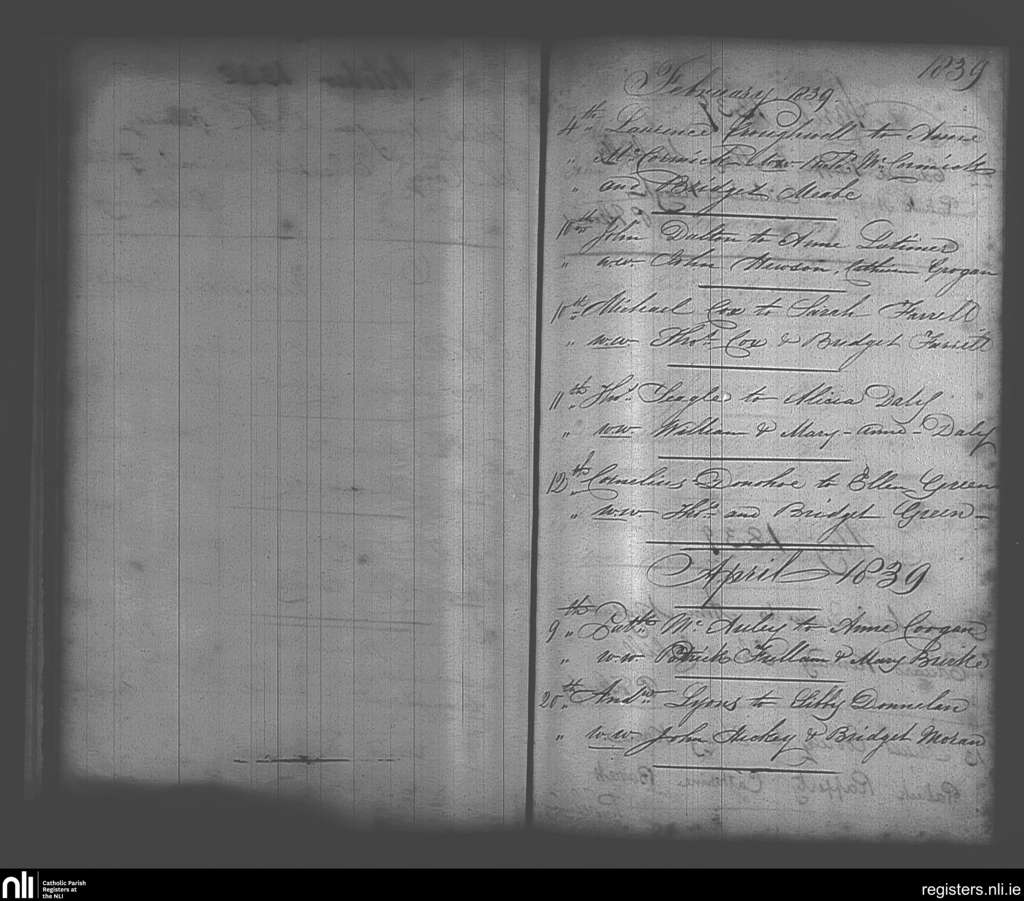 1839
February 1839.
4th „ Laurence Croughwell to Anne
„ Mc Cormick ww Patk Mc Cormick
„ and Bridget Meabe
10th „ John Dalton to Anne Latimer
„ w.w. John Hewson, Cathern Grogan
10th „ Michael Cox to Sarah Farrell
„ w.w Thos Cox & Bridget Farrell
11th „ Thos Seagle to Alicia Daly
„ w.w. William & Mary-Anne-Daly
12th „ Cornelius Donohoe to Ellen Green
„ w.w Thos and Bridget Green-
April 1839
9th „ Mc Auley to Anne Coogan
„ w.w. Patrick Fullam & Mary Burke
20th „ Andw Lyons to Libby Donnelan
„ w.w. John Hickey & Bridget Moran
nli Catholic Parish
Registers at
the NLI
registers.nli.ie